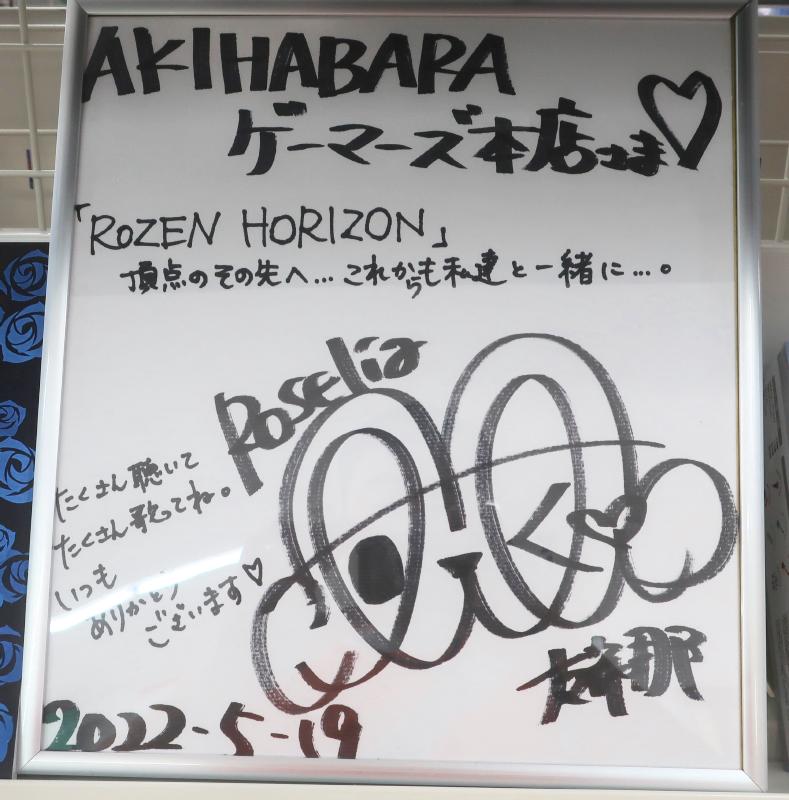 AKIHABARA
ゲーマーズ本店さま♡
「ROZEN HORIZON」
頂点のその先へ…これからも私達と一緒に…。
Roselia
たくさん聴いて
たくさん歌ってね。
いつも
ありがとう
ございます♡
2022-5-19